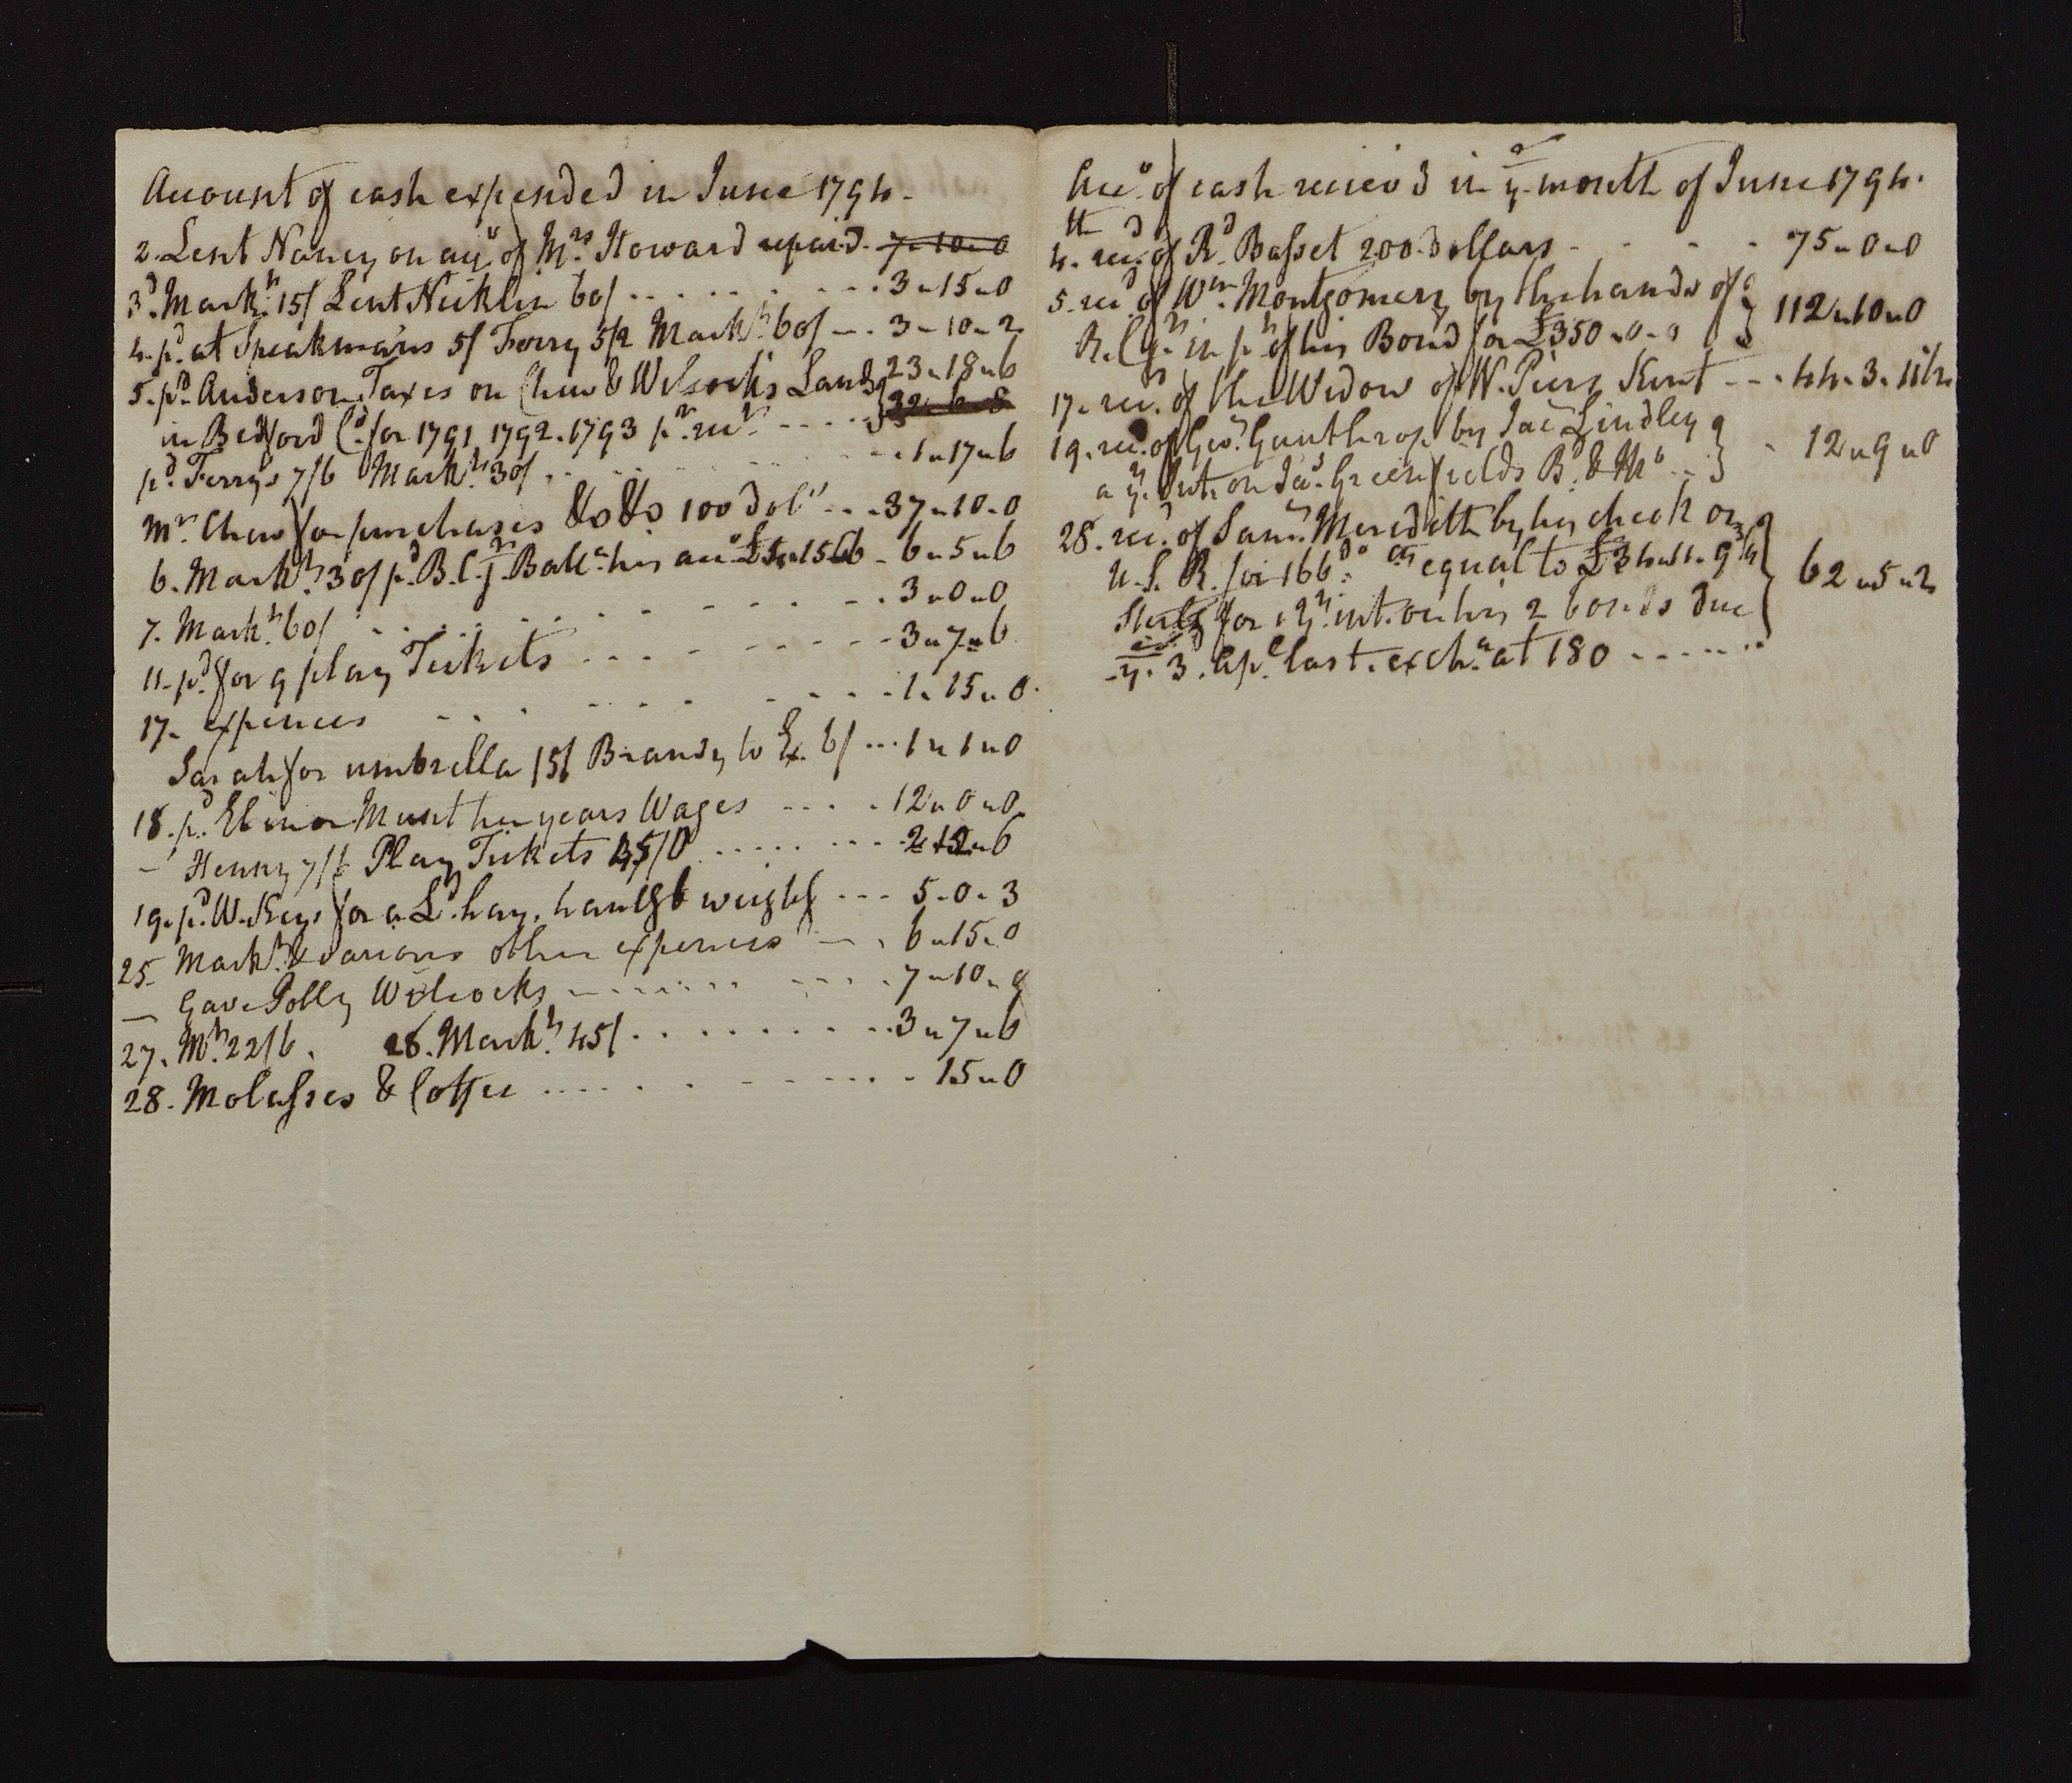 Account of cash expended in June 1794.
2. Lent Nancy on acc.o of Mrs. Howard repaid. 7-10-0
3d. Mark.t 15/ Lent Nicklin 60/ ......... 3 " 15 " 0
4. p.d at Speakman's 5/ Ferry 5/2 Mark.t 60/ -. 3 - 10 - 2
5. p.d Anderson Taxes on Chew & Wilcocks Lands 23 " 18 " 6
in Bedford C.o for 1791, 1792. 1793 p.r rec.t ..... 32-6-8
p.d Ferrys 7/6 Mark.t 30/ .......... 1 " 17 " 6
Mrs. Chew for purchases &c &c 100 dol.rs ... 37 " 10 - 0
6. Mark.t 30/ p.d B. C. j.r Ball.a his acc.o £4 " 15 " 6 - 6 " 5 " 6
7. Mark.t 60/ .......... 3 " 0 " 0
11. p.d for 9 play Tickets .......... 3 " 7 " 6
17. expences .......... 1 " 15 " 0
Sarah for umbrella 15/ Brandy to Ex. 6/ ... 1 " 1 " 0
18. p.d Elinor Munt her years Wages .... 12 " 0 " 0
- Henny 7/6 Play Tickets 45/0 ........ 2 " 12 " 6
19. p.d W. Keys for a L.d hay. weigh.g --- 5 - 0 - 3
25 Mark.t & various other expences -. 6 " 15 " 0
- Gave Polly Wilcocks .......... 7 " 10 " 9
27. M.t 22/6. 28. Mark.t 45/ ......... 3 " 7 " 6
28. Molasses & Coffee .......... 15 " 0
Acc.o of cash receiv'd in y.e month of June 1794.
4th. rec.d of R.d Basset 200 Dollars - - - - 75 " 0 " 0
5. rec.d of W.m Montgomery by the hands of
R. C. y.r in p.t of his Bond for £350 " 0 " 0 112 " 10 " 0
17. rec.d of the Widow of W. Piers Kent --- 44 " 3 " 11½
19. rec.d of Geo. Gunthrop by Jac. Lindley
a y.rs Int. on Ja.s Greenfields B.d & M.o .. 12 " 9 " 0
28. rec.d of Sam.l Meredith by his check on
U. S. B. for 166 equal to £34 " 11 " 9¾
Sterl.g for 1 y.rs int. on his 2 bonds due 62 " 5 " 2
y.e 3. Ap.l last. exch.a at 180 ......